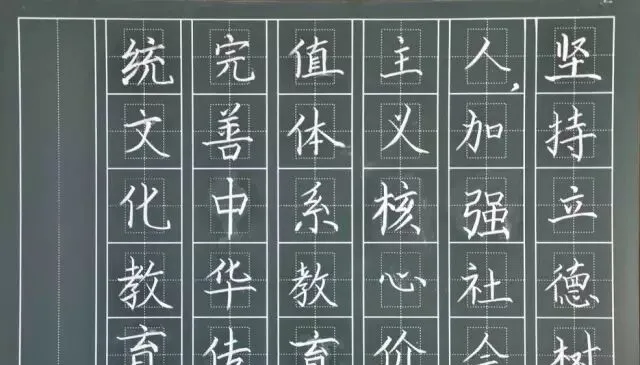 坚持立德树
人，加强社会
主义核心价
值体系教育
完善中华传
统文化教育